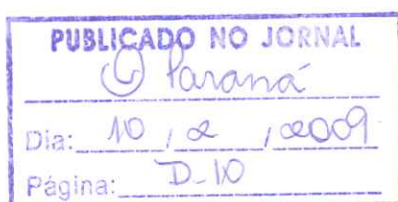 PUBLICADO NO JORNAL
O Paraná
Dia: 10 / 2 / 2009
Página: D-10